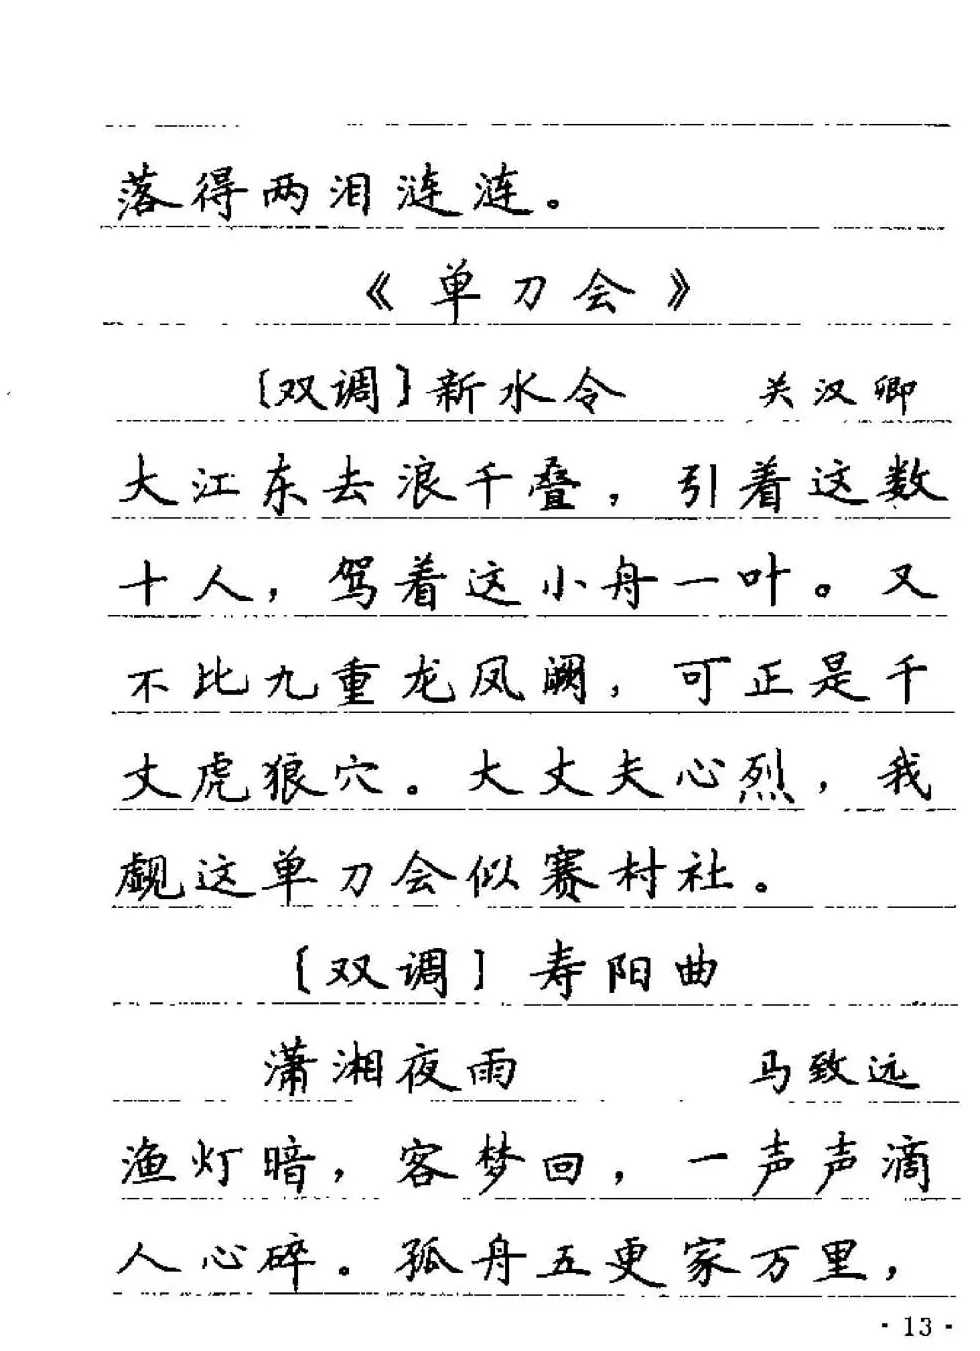 落得两泪涟涟。
《单刀会》
[双调]新水令 关汉卿
大江东去浪千叠，引着这数
十人，驾着这小舟一叶。又
不比九重龙凤阙，可正是千
丈虎狼穴。大丈夫心烈，我
觑这单刀会似赛村社。
[双调]寿阳曲
潇湘夜雨 马致远
渔灯暗，客梦回，一声声滴
人心碎。孤舟五更家万里，
·13·